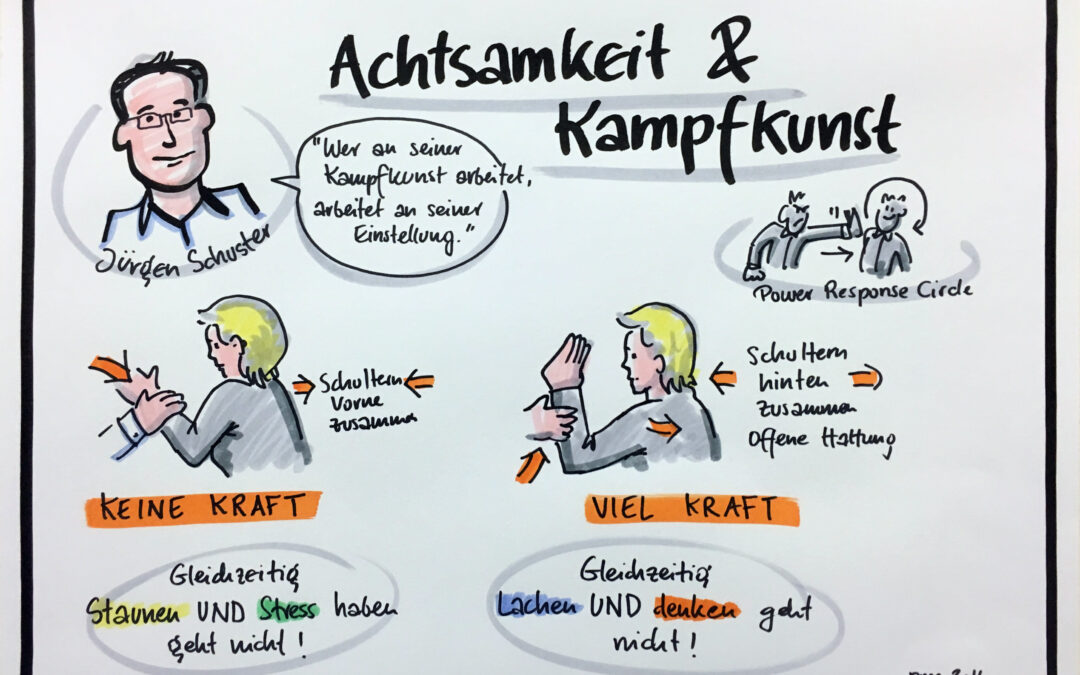 Achtsamkeit &
Kampfkunst
"Wer an seiner
Kampfkunst arbeitet,
arbeitet an seiner
Einstellung."
Jürgen Schuster
Power Response Circle
Schultern
Vorne
zusammen
Schultern
hinten
zusammen
Offene Haltung
KEINE KRAFT
VIEL KRAFT
Gleichzeitig
Staunen UND Stress haben
geht nicht!
Gleichzeitig
Lachen UND denken geht
nicht!